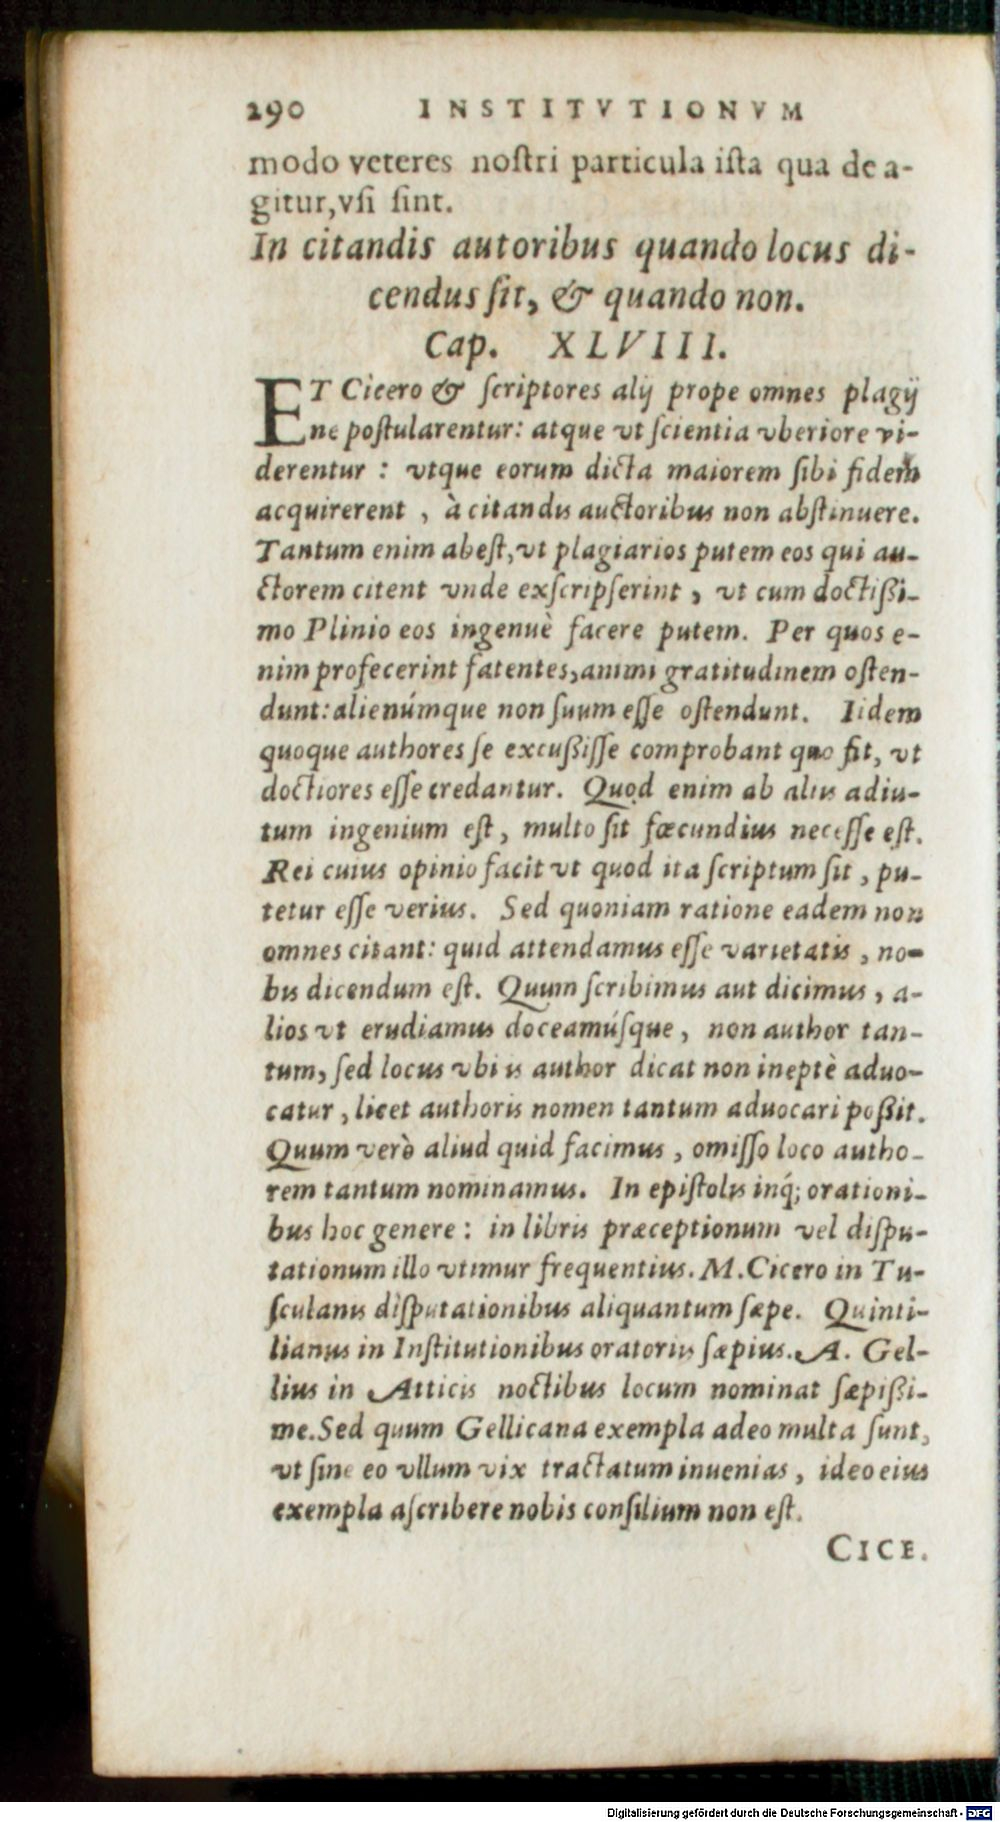 290 INSTITVTIONVM
modo veteres noſtri particula iſta qua de a-
gitur,vſi ſint.
In citandis autoribus quando locus di-
cendus ſit, & quando non.
Cap. XLVIII.
ET Cicero & ſcriptores alij prope omnes plagij
ne poſtularentur: atque vt ſcientia vberiore vi-
derentur : vtque eorum dicta maiorem ſibi fidem
acquirerent , à citandis auctoribus non abſtinuere.
Tantum enim abeſt,vt plagiarios putem eos qui au-
ctorem citent vnde exſcripſerint , vt cum doctißi-
mo Plinio eos ingenuè facere putem. Per quos e-
nim profecerint fatentes,animi gratitudinem oſten-
dunt:alienúmque non ſuum eſſe oſtendunt. Iidem
quoque authores ſe excußiſſe comprobant quo fit, vt
doctiores eſſe credantur. Quod enim ab aliis adiu-
tum ingenium eſt, multo ſit fœcundius neceſſe eſt.
Rei cuius opinio facit vt quod ita ſcriptum ſit , pu-
tetur eſſe verius. Sed quoniam ratione eadem non
omnes citant: quid attendamus eſſe varietatis , no-
bis dicendum eſt. Quum ſcribimus aut dicimus , a-
lios vt erudiamus doceamúſque, non author tan-
tum, ſed locus vbi is author dicat non ineptè aduo-
catur , licet authoris nomen tantum aduocari poßit.
Quum verò aliud quid facimus , omiſſo loco autho-
rem tantum nominamus. In epiſtolis inq́; orationi-
bus hoc genere : in libris præceptionum vel diſpu-
tationum illo vtimur frequentius. M.Cicero in Tu-
ſculanis diſputationibus aliquantum ſæpe. Quinti-
lianus in Inſtitutionibus oratoriis ſæpius. A. Gel-
lius in Atticis noctibus locum nominat ſæpißi-
me.Sed quum Gellicana exempla adeo multa ſunt,
vt ſine eo vllum vix tractatum inuenias , ideo eius
exempla aſcribere nobis conſilium non eſt.
CICE.
Digitalisierung gefördert durch die Deutsche Forschungsgemeinschaft - DFG